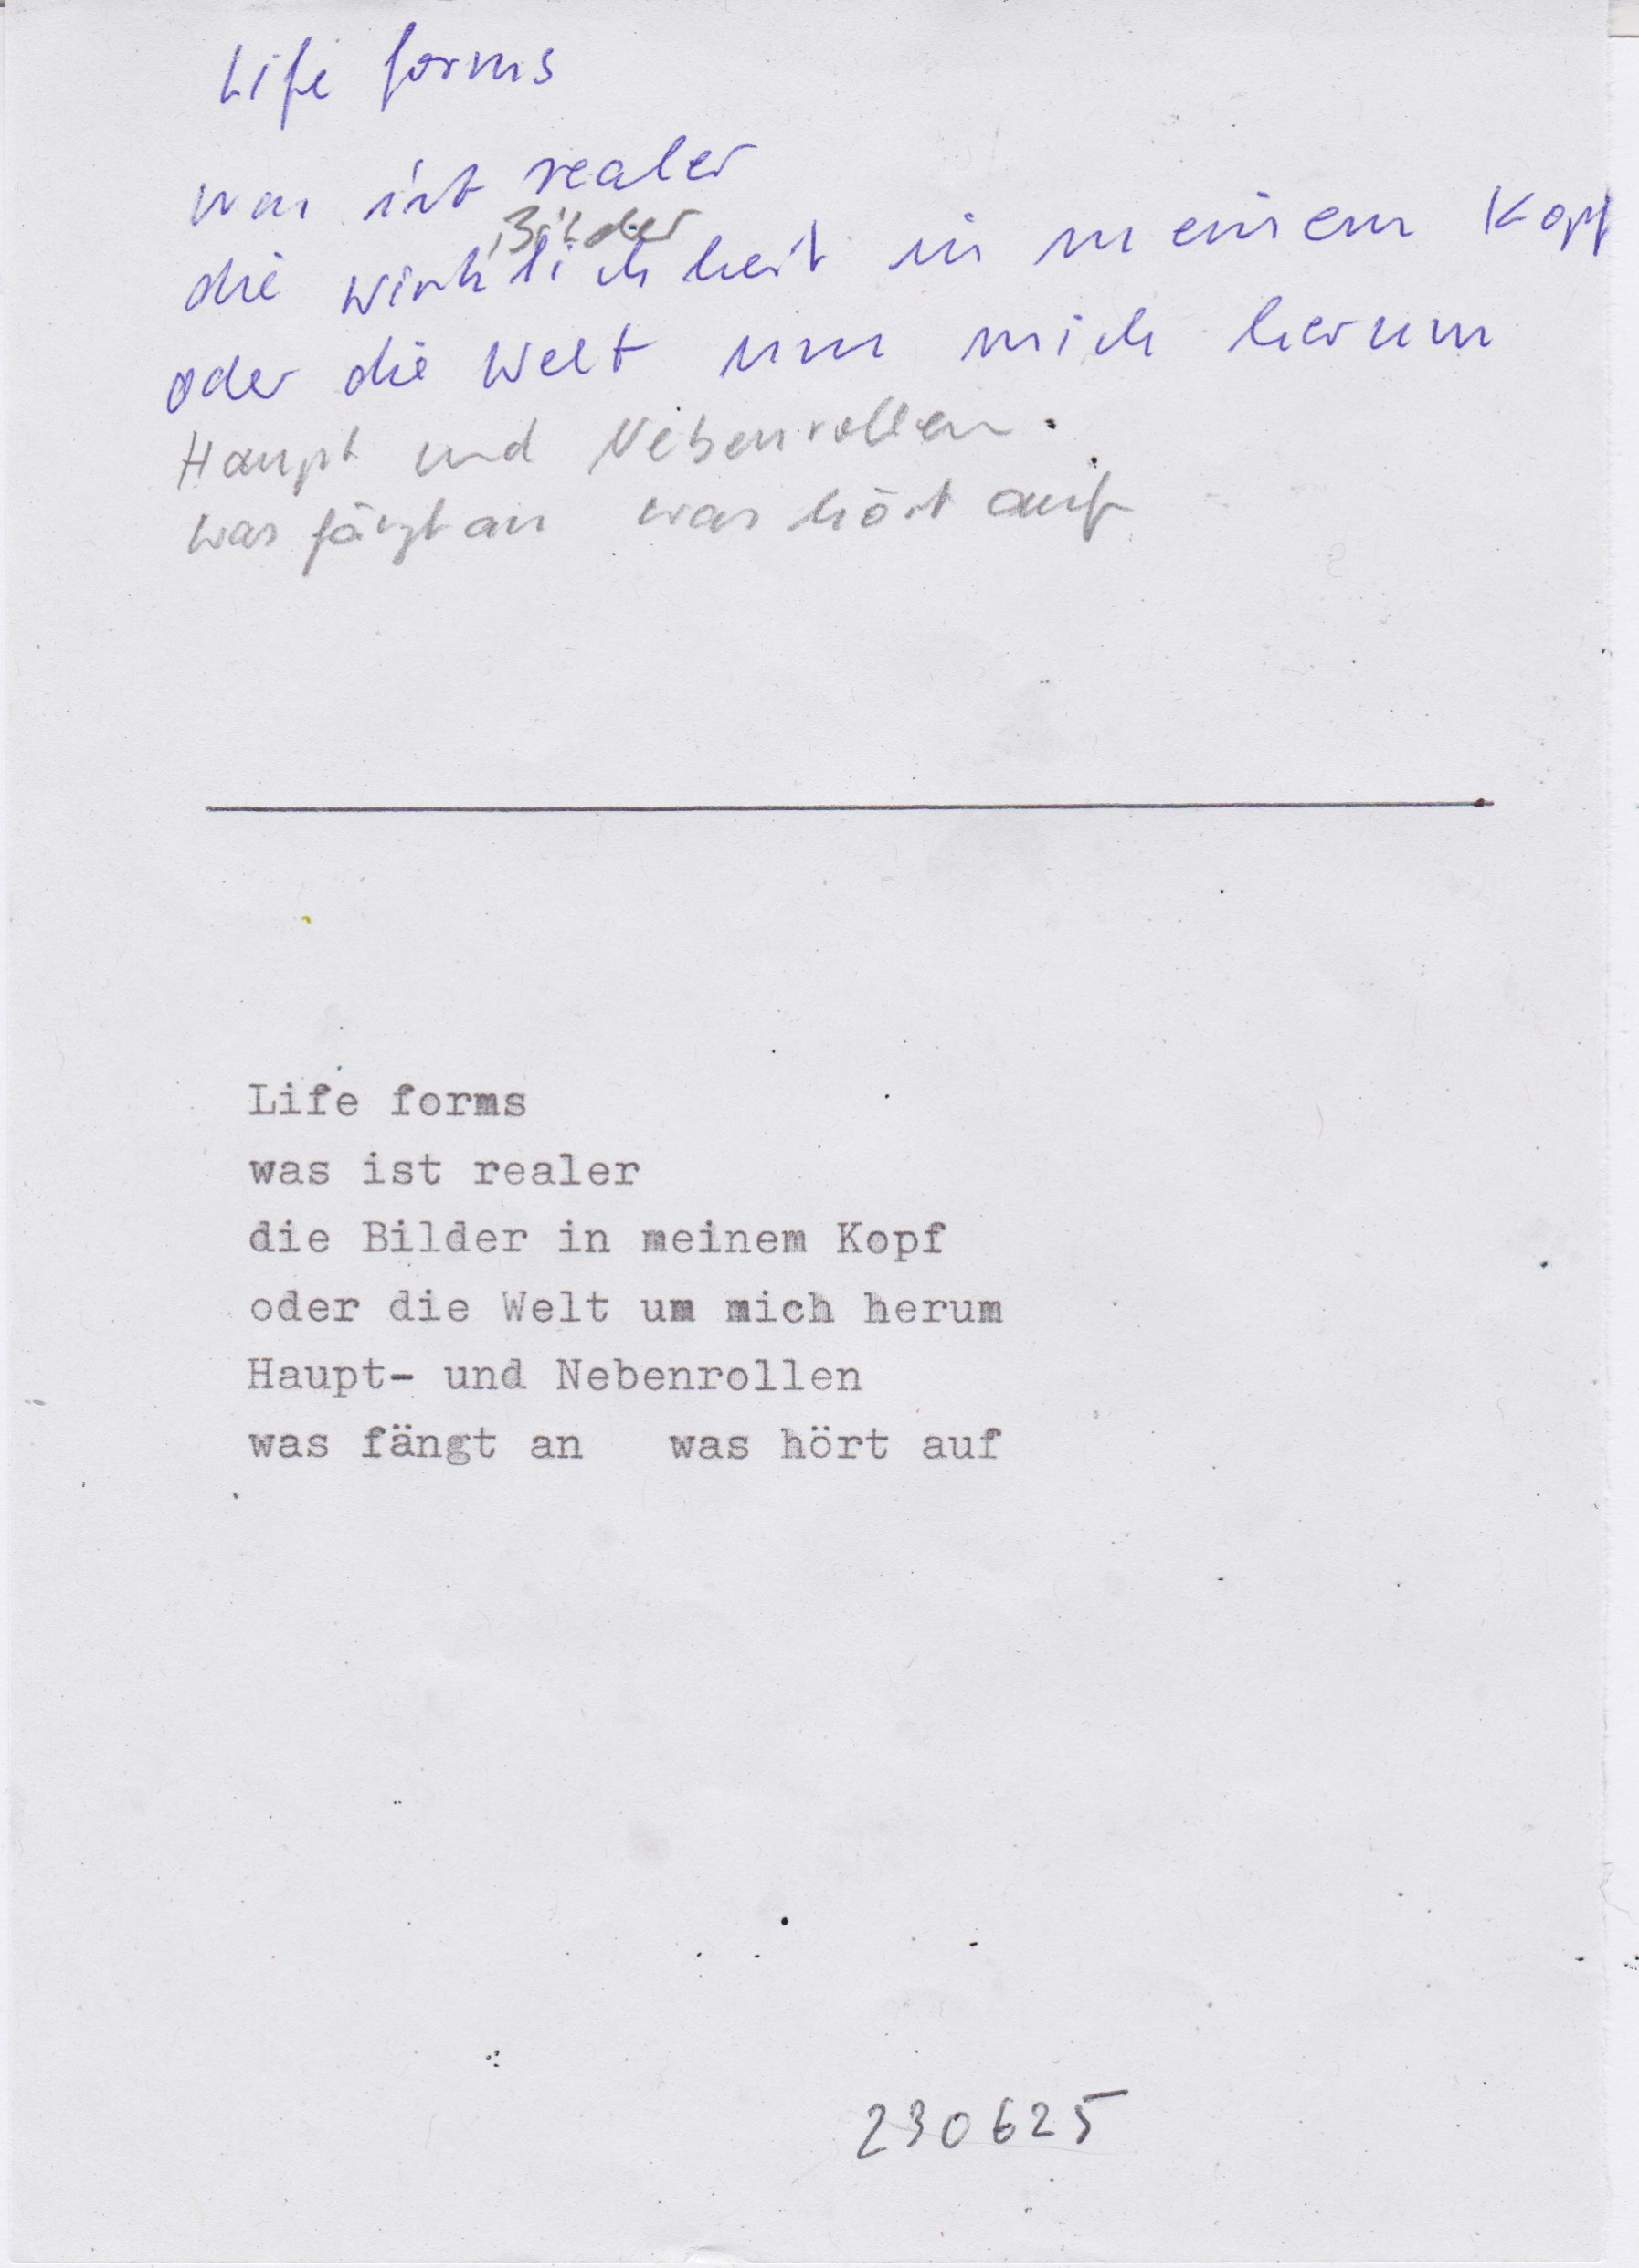 Life forms
was ist realer
Bilder
die Wirklichkeit in meinem Kopf
oder die Welt um mich herum
Haupt und Nebenrollen
was fängt an was hört auf
Life forms
was ist realer
die Bilder in meinem Kopf
oder die Welt um mich herum
Haupt- und Nebenrollen
was fängt an   was hört auf
230625